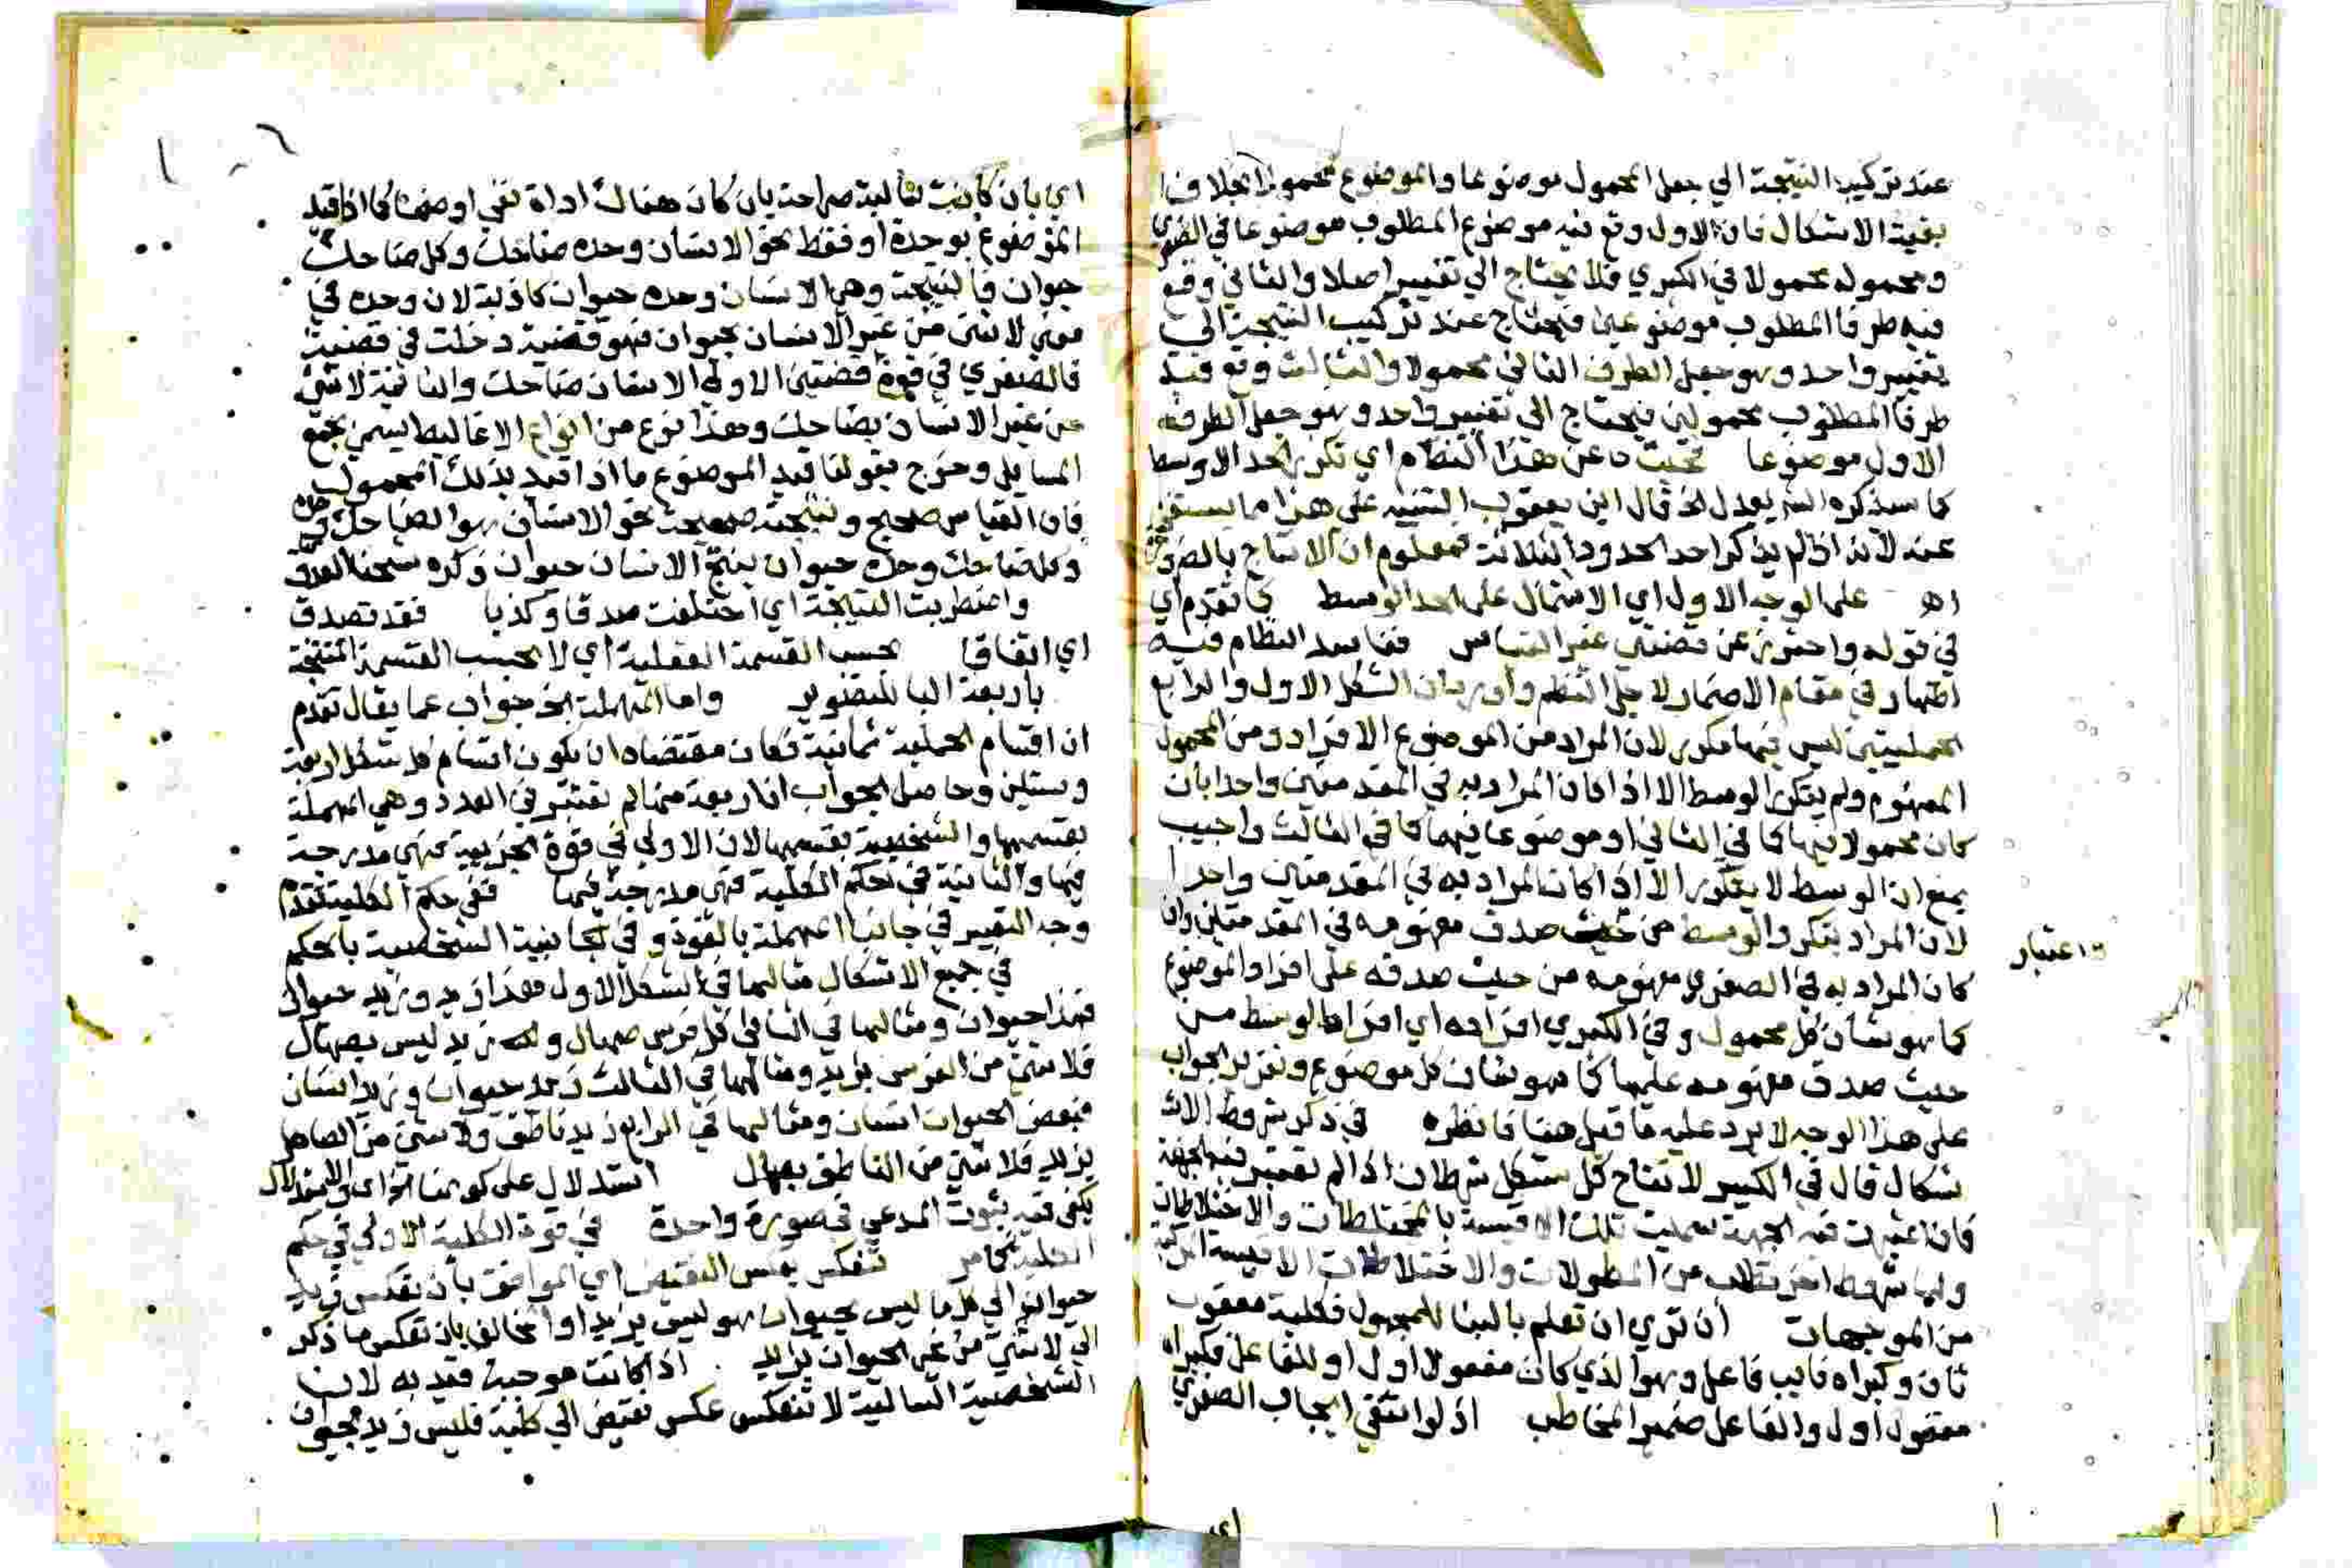 عند تركيب النتيجة الي جعل المحمول موضوعا والموضوع محمولا بخلاف
بقية الاشكال فان الاول وقع فيه موضوع المطلوب موضوعا في الصغري
ومحموله محمولا في الكبري فلا يحتاج الي تغيير اصلا والثاني وقع
فيه طرفا المطلوب موضوعين فيحتاج عند تركيب النتيجة الي
تغيير واحد وهو جعل الطرف الثاني محمولا والثالث وقع فيه
طرفا المطلوب محمولين فيحتاج الي تغيير واحد وهو جعل الطرف
الاول موضوعا عن هذا النظام اي تكرر الحد الاوسط
كما سيذكره الش بعد لخ قال ابن يعقوب التنبيه علي هذا مما يستغني
عنه لانه اذا لم يذكر احد الحدود الثلاثة فمعلوم ان الانتاج بالضرورة
اه علي الوجه الاول اي الاشتمال علي الحد الوسط كما تقدم اي
في قوله واحترز عن قضيتي غير القياس ففاسد النظام فيه
اظهار في مقام الاضمار لاجل النظم واورد ان الشكل الاول والرابع
الحمليتين ليس فيهما مكرر لان المراد من الموضوع الافراد ومن المحمول
المفهوم ولم يتكرر الوسط الا اذا كان المراد به في المقدمتين واحدا بان
كان محمولا فيهما كما في الثاني او موضوعا فيهما كما في الثالث واجيب
بمنع ان الوسط لا يتكرر الا اذا كان المراد به في المقدمتين واحدا
لان المراد بتكرر الوسط من حيث صدق مفهومه في المقدمتين وان
اعتبار
كان المراد به في الصغري مفهومه من حيث صدقه علي افراد الموضوع
كما هو شأن كل محمول وفي الكبري افراده اي افراد الوسط من
حيث صدق مفهومه عليها كما هو شان كل موضوع وتقرير الجواب
علي هذا الوجه لا يرد عليه ما قيل هنا فانظره في ذكر شروط الاش
شكال قال في الكبير لانتاج كل شكل شرطان اذا لم تعتبر فيه الجهة
فان اعتبرت فيه الجهة سميت تلك الاقيسة بالمختلطات والاختلاطات
ولها شروط اخر تطلب من المطولات والاختلاطات الاقيسة المركبة
من الموجهات أن تري ان تعلم بالبنا للمجهول فكلية مفعول
ثان وكبراه نايب فاعل وهو الذي كان مفعولا اول او للفاعل فكبراه
مفعول اول والفاعل ضمير المخاطب اذ لو انتفي ايجاب الصغري
اي
اي بان كانت سالبة صراحة بان كان هناك اداة نفي او ضمنا كما اذا قيد
الموضوع بوحدة او فقط نحو الانسان وحده ضاحك وكل ضاحك
حيوان فالنتيجة وهي الانسان وحده حيوان كاذبة لان وحده في
معني لا شئ من غير الانسان بحيوان فهو قضية دخلت في قضية
فالصغري في قوة قضيتين الاولي الانسان ضاحك والثانية لا شئ
من غير الانسان بضاحك وهذا نوع من انواع الاغاليط يسمي بجمع
المسايل وخرج بقولنا قيد الموضوع ما اذا قيد بذلك المحمول
فان القياس صحيح ونتيجته صحيحة نحو الانسان هو الضاحك وحده
وكل ضاحك وحده حيوان ينتج الانسان حيوان ذكره شيخنا العدوي
واضطربت النتيجة اي اختلفت صدقا وكذبا فقد تصدق
اي اتفاقا بحسب القسمة العقلية اي لا بحسب القسمة المنتجة
باربعة البا للتصوير واما المهملة الخ جواب عما يقال تقدم
ان اقسام الحملية ثمانية فكان مقتضاه ان يكون اقسام كل شكل اربعة
وستين وحاصل الجواب ان اربعة منها لم تعتبر في العدد وهي المهملة
بقسميها والشخصية بقسميها لان الاولي في قوة الجزيية فهي مندرجة
فيها والثانية في حكم الكلية فهي مندرجة فيها ففي حكم الكلية تقدم
وجه التعبير في جانب المهملة بالقوة وفي جانبية الشخصية بالحكم
في جميع الاشكال مثالها في الشكل الاول هذا زيد وزيد حيوان
فهذا حيوان ومثالها في الثاني كل فرس صهال وزيد ليس بصهال
فلا شئ من الفرس بزيد ومثالها في الثالث زيد حيوان وزيد انسان
فبعض الحيوان انسان ومثالها في الرابع زيد ناطق ولا شئ من الصاهل
بزيد فلا شئ من الناطق بصهال استدلال علي كونها
يكفي فيه ثبوت المدعي في صورة واحدة في قوة الكلية الاولي في حكم
الكلية كما مر تنعكس بعكس النقيض اي الموافق بأن تعكس زيد
حيوان الي كل ما ليس بحيوان هو ليس بزيد او المخالف بان تعكس ما ذكر
الي لا شئ من غير الحيوان بزيد اذا كانت موجبة قيد به لان
الشخصية السالبة لا تنعكس عكس نقيض الي كلية فليس زيد